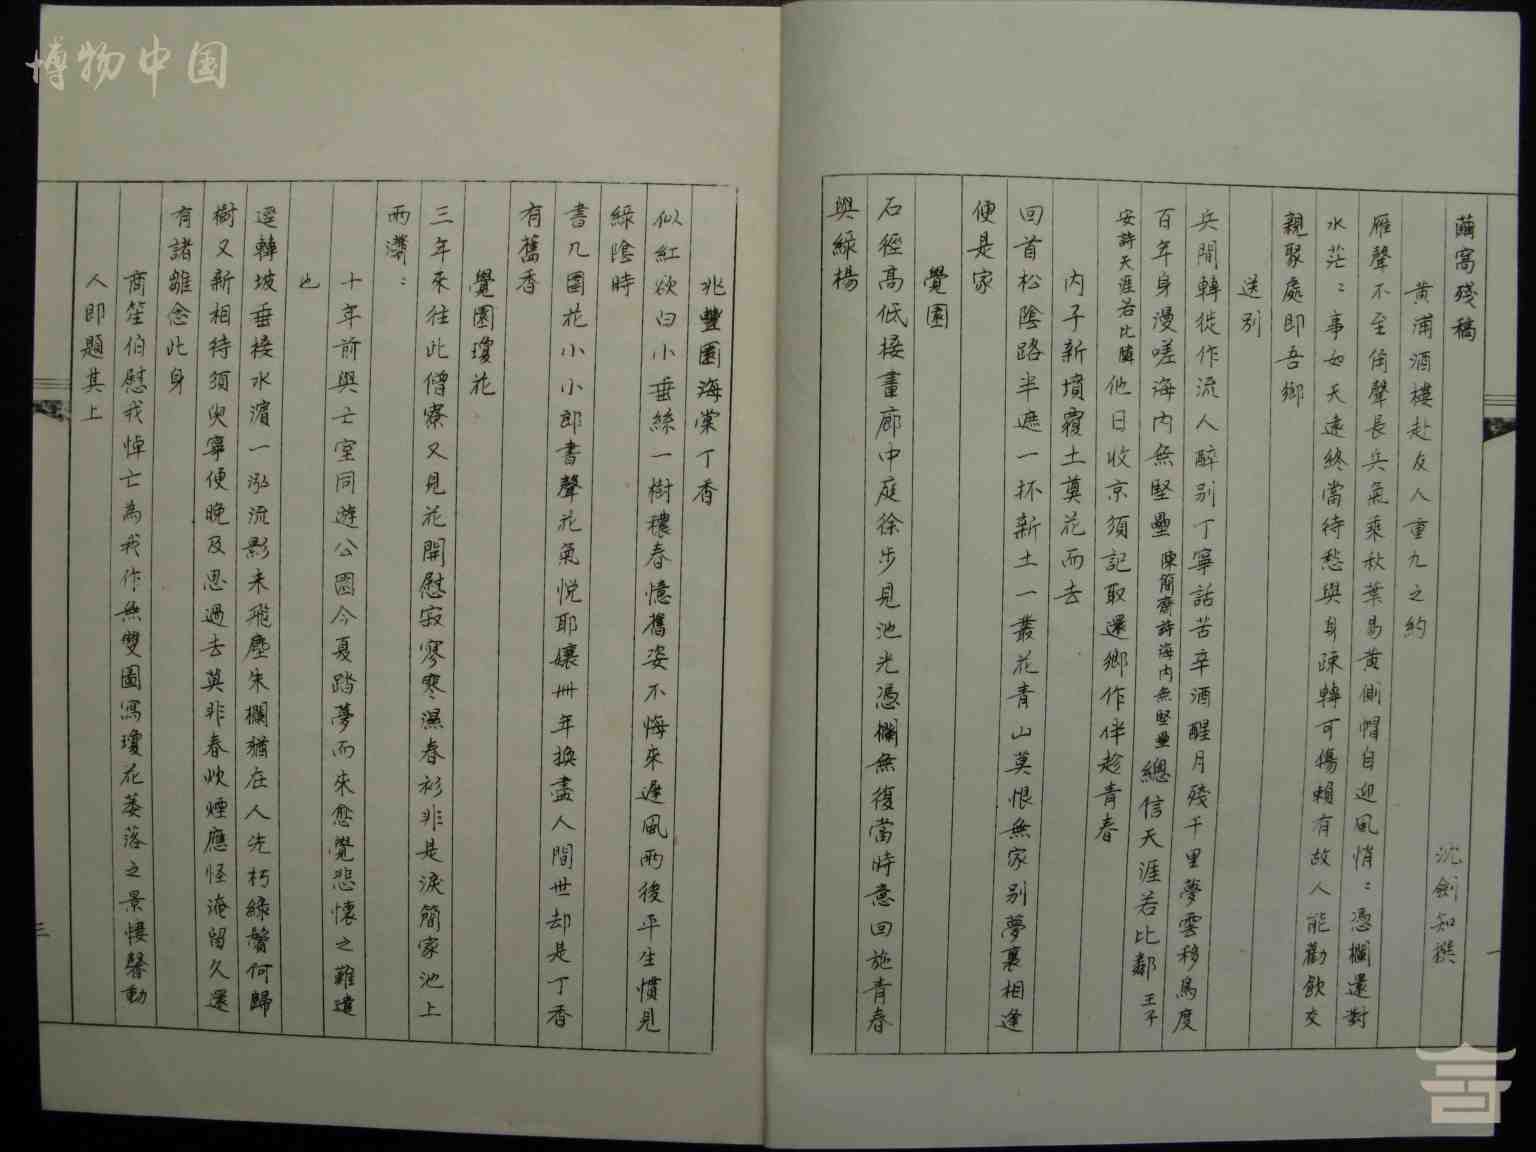 繭窩殘稿
沈劍知撰
黄浦酒樓赴友人重九之約
雁聲不至角聲長兵氣乘秋葉易黄側帽自迎風悄〻憑欄還對
水茫〻事如天遠終當待愁與身疎轉可傷賴有故人能勸飲交
親聚處即吾鄉
送别
兵間轉徙作流人醉别丁寧話苦辛酒醒月殘千里夢雲移鳥度
百年身漫嗟海内無堅壘陳簡齋詩海内無堅壘總信天涯若比鄰王子
安詩天涯若比鄰他日收京須記取還鄉作伴趁青春
内子新墳覆土奠花而去
回首松陰路半遮一抔新土一叢花青山莫恨無家别夢裏相逢
便是家
覺園
石徑高低接畫廊中庭徐步見池光憑欄無復當時意回施青春
與綠楊
兆豐園海棠丁香
似紅欲白小垂絲一樹穠春憶舊姿不悔來遲風雨後平生慣見
綠陰時
書九圖花小小郎書聲花氣悦耶孃卅年換盡人間世却是丁香
有舊香
覺園瓊花
三年來往此僧寮又見花開慰寂寥寒濕春衫非是淚簡家池上
雨瀟〻
十年前與亡室同遊公園今夏踏夢而來愈覺悲懷之難遣
也
逕轉坡垂接水濱一泓流影未飛塵朱欄猶在人先朽綠鬢何歸
樹又新相待須臾寧便晚及思過去莫非春炊煙應怪淹留久還
有諸雛念此身
商笙伯慰我悼亡為我作無雙圖寫瓊花萎落之景悽馨動
人即題其上
一
三
博物中国